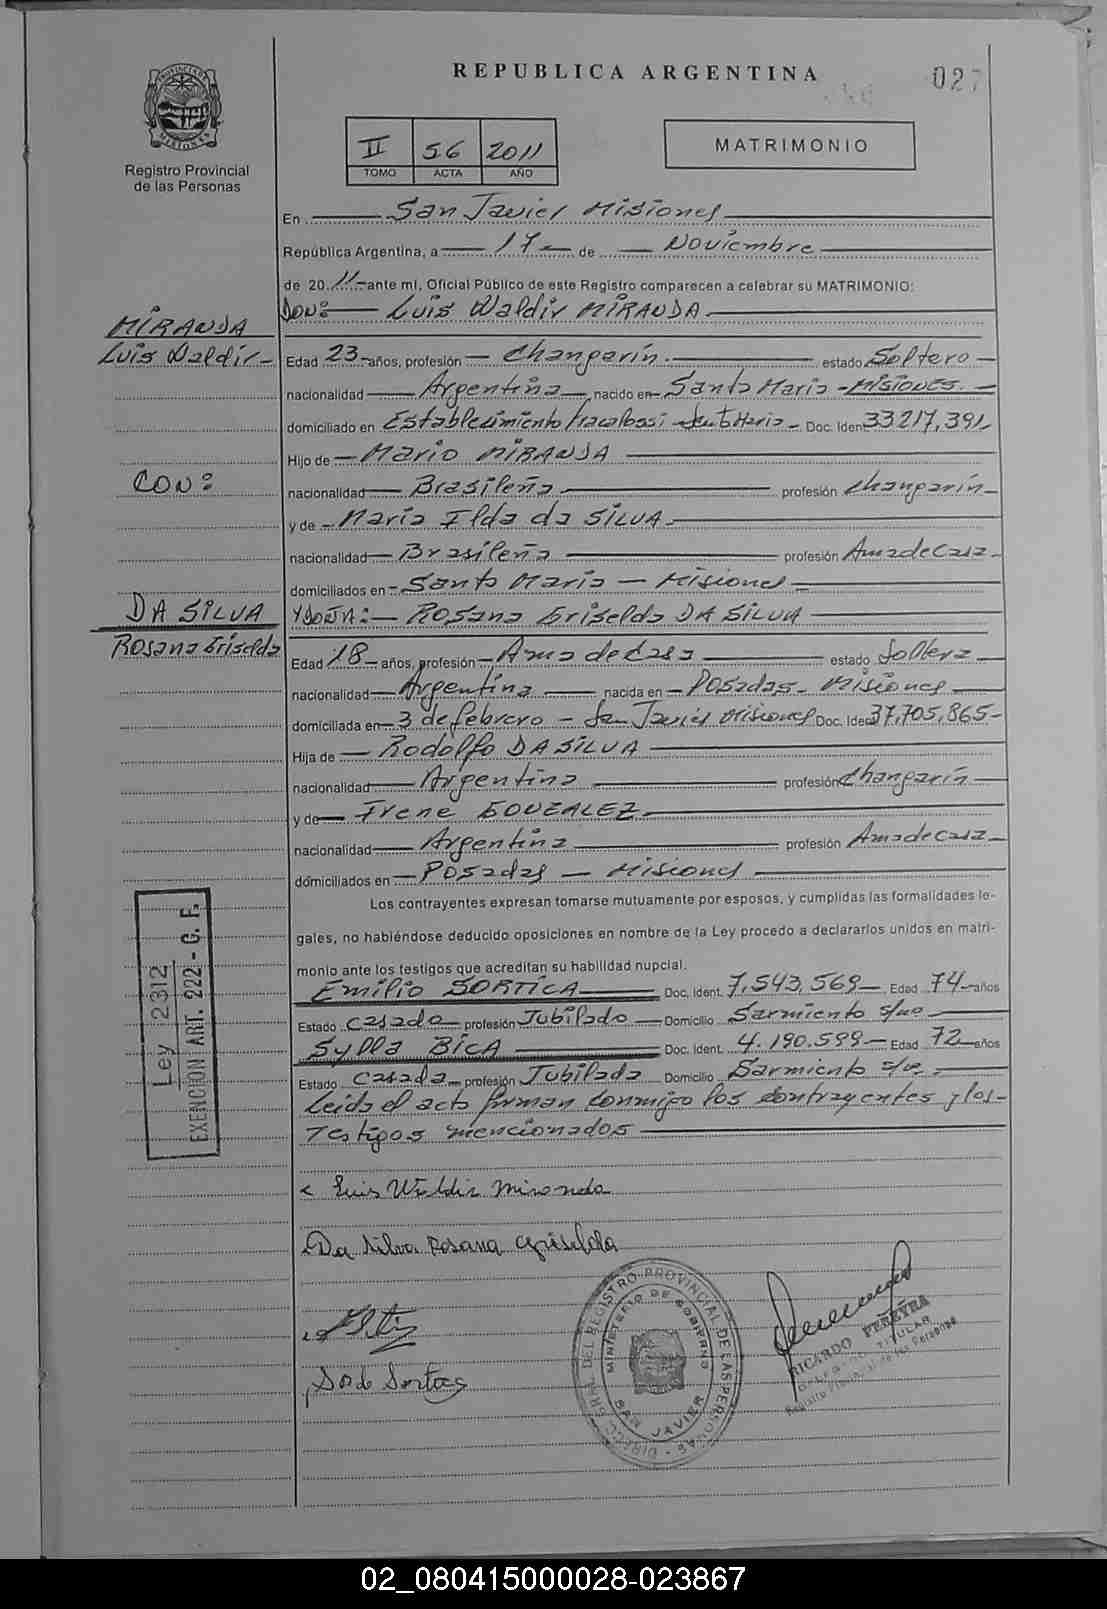 REPUBLICA ARGENTINA
027
PROVINCIA DE MISIONES
Registro Provincial
de las Personas
II 56 2011
TOMO ACTA AÑO
MATRIMONIO
En San Javier Misiones
República Argentina, a 17 de Noviembre
de 20 11 ante mí, Oficial Público de este Registro comparecen a celebrar su MATRIMONIO:
DON: Luis Waldir MIRANDA
MIRANDA
Luis Waldir
Edad 23 años, profesión Changarín estado Soltero
nacionalidad Argentina nacido en Santa María - MISIONES
domiciliado en Establecimiento Santa María Doc. Iden 33217,391
Hijo de Mario MIRANDA
CON:
nacionalidad Brasileña profesión Changarín
y de María Ilda da SILVA
nacionalidad Brasileña profesión Ama de Casa
domiciliados en Santa María - Misiones
DA SILVA
Y DOÑA: Rosana Griselda DA SILVA
Rosana Griselda
Edad 18 años, profesión Ama de Casa estado Soltera
nacionalidad Argentina nacida en Posadas - Misiones
domiciliada en 3 de febrero - San Javier Misiones Doc. Iden 37,705,865
Hija de Rodolfo DA SILVA
nacionalidad Argentina profesión Changarín
y de Irene GONZALEZ
nacionalidad Argentina profesión Ama de Casa
domiciliados en Posadas - Misiones
Los contrayentes expresan tomarse mutuamente por esposos, y cumplidas las formalidades le-
gales, no habiéndose deducido oposiciones en nombre de la Ley procedo a declararlos unidos en matri-
monio ante los testigos que acreditan su habilidad nupcial.
Emilio SORTICA Doc. Ident. 7,543,569 Edad 74 años
Estado Casado profesión Jubilado Domicilio Sarmiento s/no
Sylla BICA Doc. Ident. 4.190.599 Edad 72 años
Estado Casada profesión Jubilada Domicilio Sarmiento s/no
Leída el acta firman conmigo los contrayentes y los
Testigos mencionados
Ley 2312
EXENCION ART. 222 - C. F.
Luis Waldir Miranda
Da Silva Rosana Griselda
DIRECC. GRAL. DEL REGISTRO PROVINCIAL DE LAS PERSONAS
MINISTERIO DE GOBIERNO
SAN JAVIER
RICARDO PEREYRA
TITULAR
Registro Provincial de las Personas
02_080415000028-023867